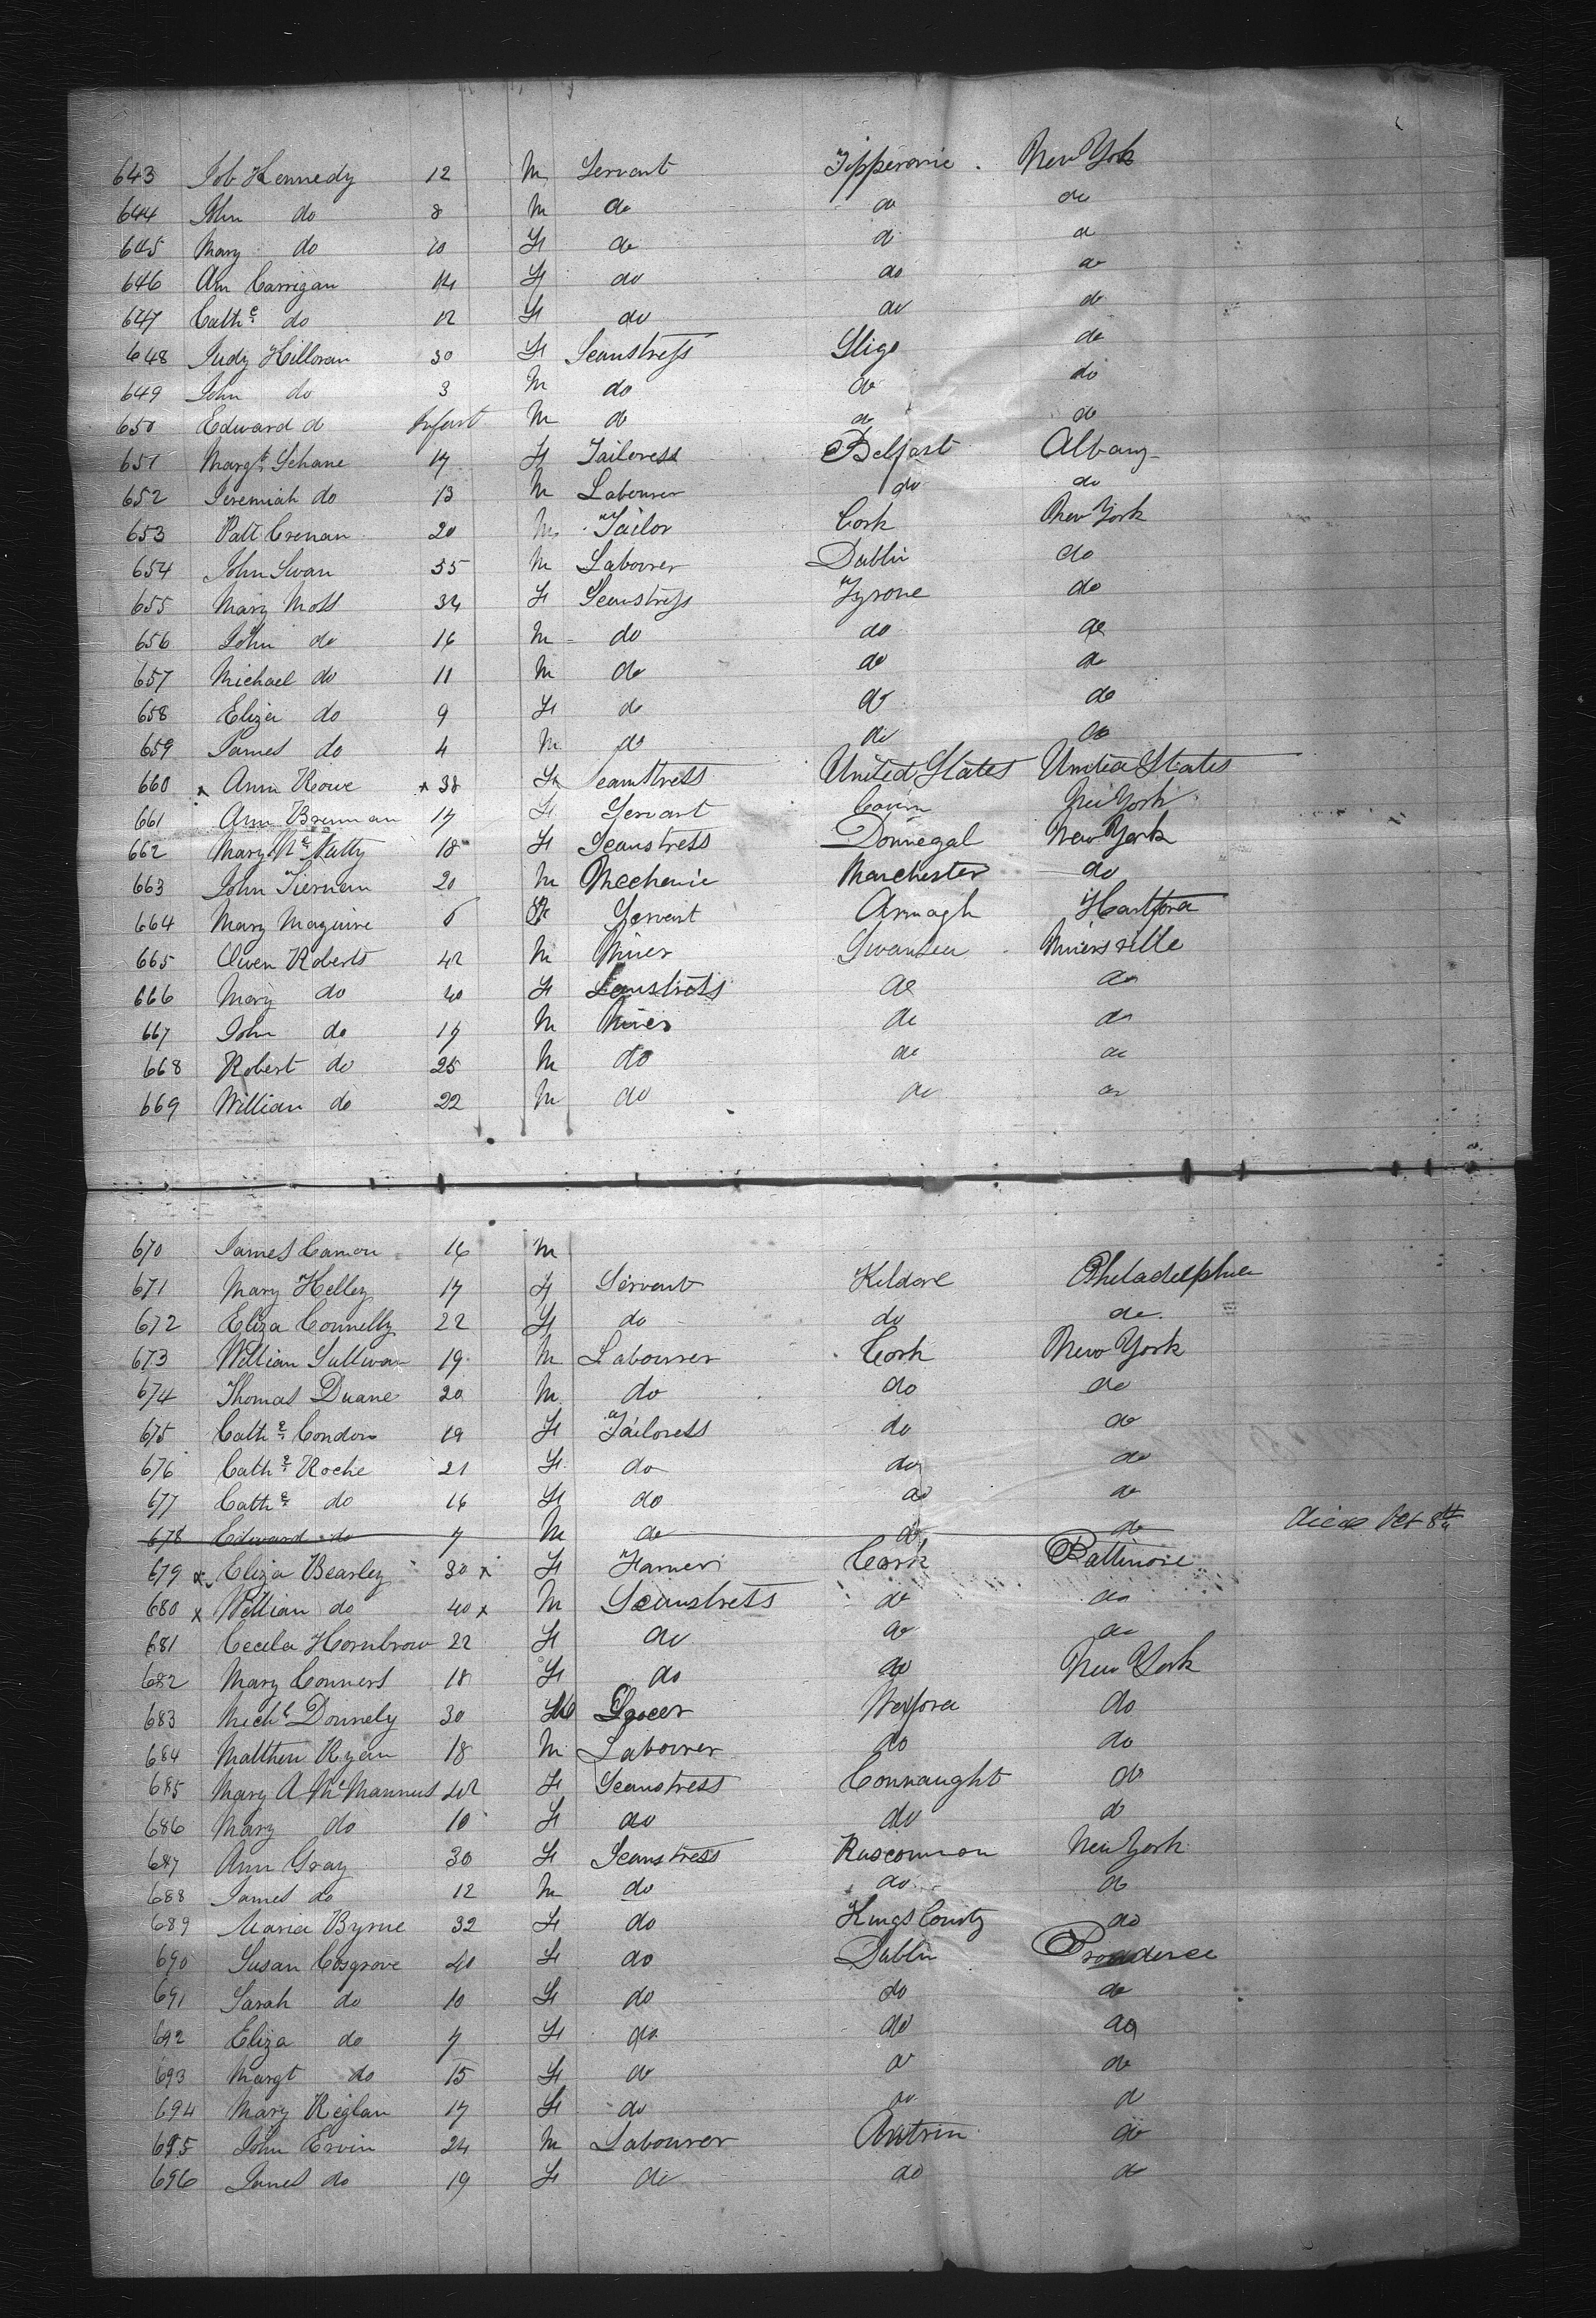 643 Job Kennedy 12 M Servant Tipperarie . New York
644 John do 8 M do do do
645 Mary do 10 F do do do
646 Ann Carrigan 14 F do do do
647 Cathe do 12 F do do do
648 Judy Killoran 30 F Seamstress Sligo do
649 John do 3 M do do do
650 Edward do Infant M do do do
651 Margt Sehane 17 F Tailoress Belfast Albany
652 Jeremiah do 13 M Labourer do do
653 Patt Crenan 20 M Tailor Cork New York
654 John Swan 35 M Labourer Dublin do
655 Mary Moss 34 F Seamstress Tyrone do
656 John do 16 M do do do
657 Michael do 11 M do do do
658 Eliza do 9 F do do do
659 James do 4 M do do do
660 x Ann Rowe x 38 F Seamstress United States United States
661 Ann Brennan 17 F Servant Cavin New York
662 Mary Mc Natty 18 F Seamstress Donnegal New York
663 John Tiernan 20 M Mechanic Manchester do
664 Mary Maguire 6 F Servant Armagh Hartford
665 Owen Roberts 42 M Miner Swansea Minersville
666 Mary do 40 F Seamstress do do
667 John do 17 M Miner do do
668 Robert do 25 M do do do
669 William do 22 M do do do
670 James Camon 16 M
671 Mary Kelley 17 F Servant Kildare Philadelphia
672 Eliza Connelly 22 F do do do
673 William Sullivan 19 M Labourer Cork New York
674 Thomas Duane 20 M do do do
675 Cathe Condon 19 F Tailoress do do
676 Cathe Roche 21 F do do do
677 Cathe do 16 F do do do
678 Edward do 7 M do do do died Oct 8th
679 x Eliza Bearley 30 x F Farmer Cork Baltimore
680 x William do 40 x M Seamstress do do
681 Cecila Hornbrow 22 F do do do
682 Mary Conners 18 F do do New York
683 Michl Donnely 30 M Grocer Wexford do
684 Matthew Ryan 18 M Labourer do do
685 Mary A McMannus 42 F Seamstress Connaught do
686 Mary do 10 F do do do
687 Ann Gray 30 F Seamstress Roscommon New York
688 James do 12 M do do do
689 Maria Byrne 32 F do Kings County do
690 Susan Cosgrove 40 F do Dublin Providence
691 Sarah do 10 F do do do
692 Eliza do 7 F do do do
693 Margt do 15 F do do do
694 Mary Reglan 17 F do do do
695 John Ervin 24 M Labourer Antrim do
696 James do 19 F do do do